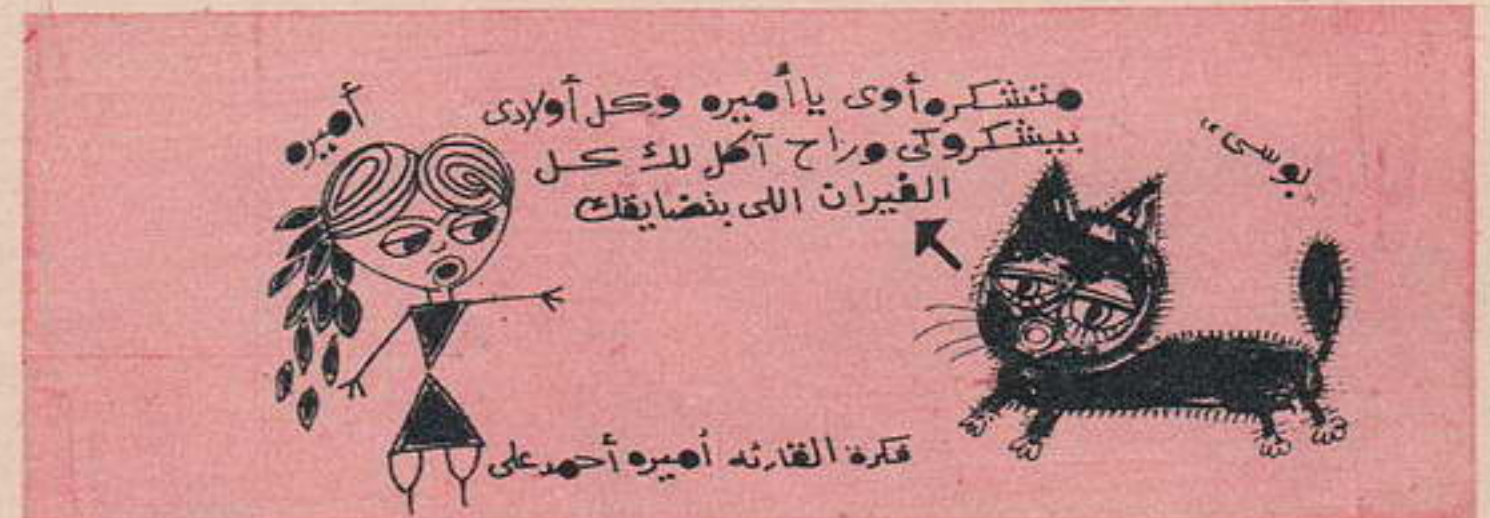 "بوسى"
متشكره أوى يا أميره وكل أولادى
بيشكروكى وراح آكل لك كل
الفيران اللى بتضايقك
أميره
فكرة القارئه أميره أحمد على